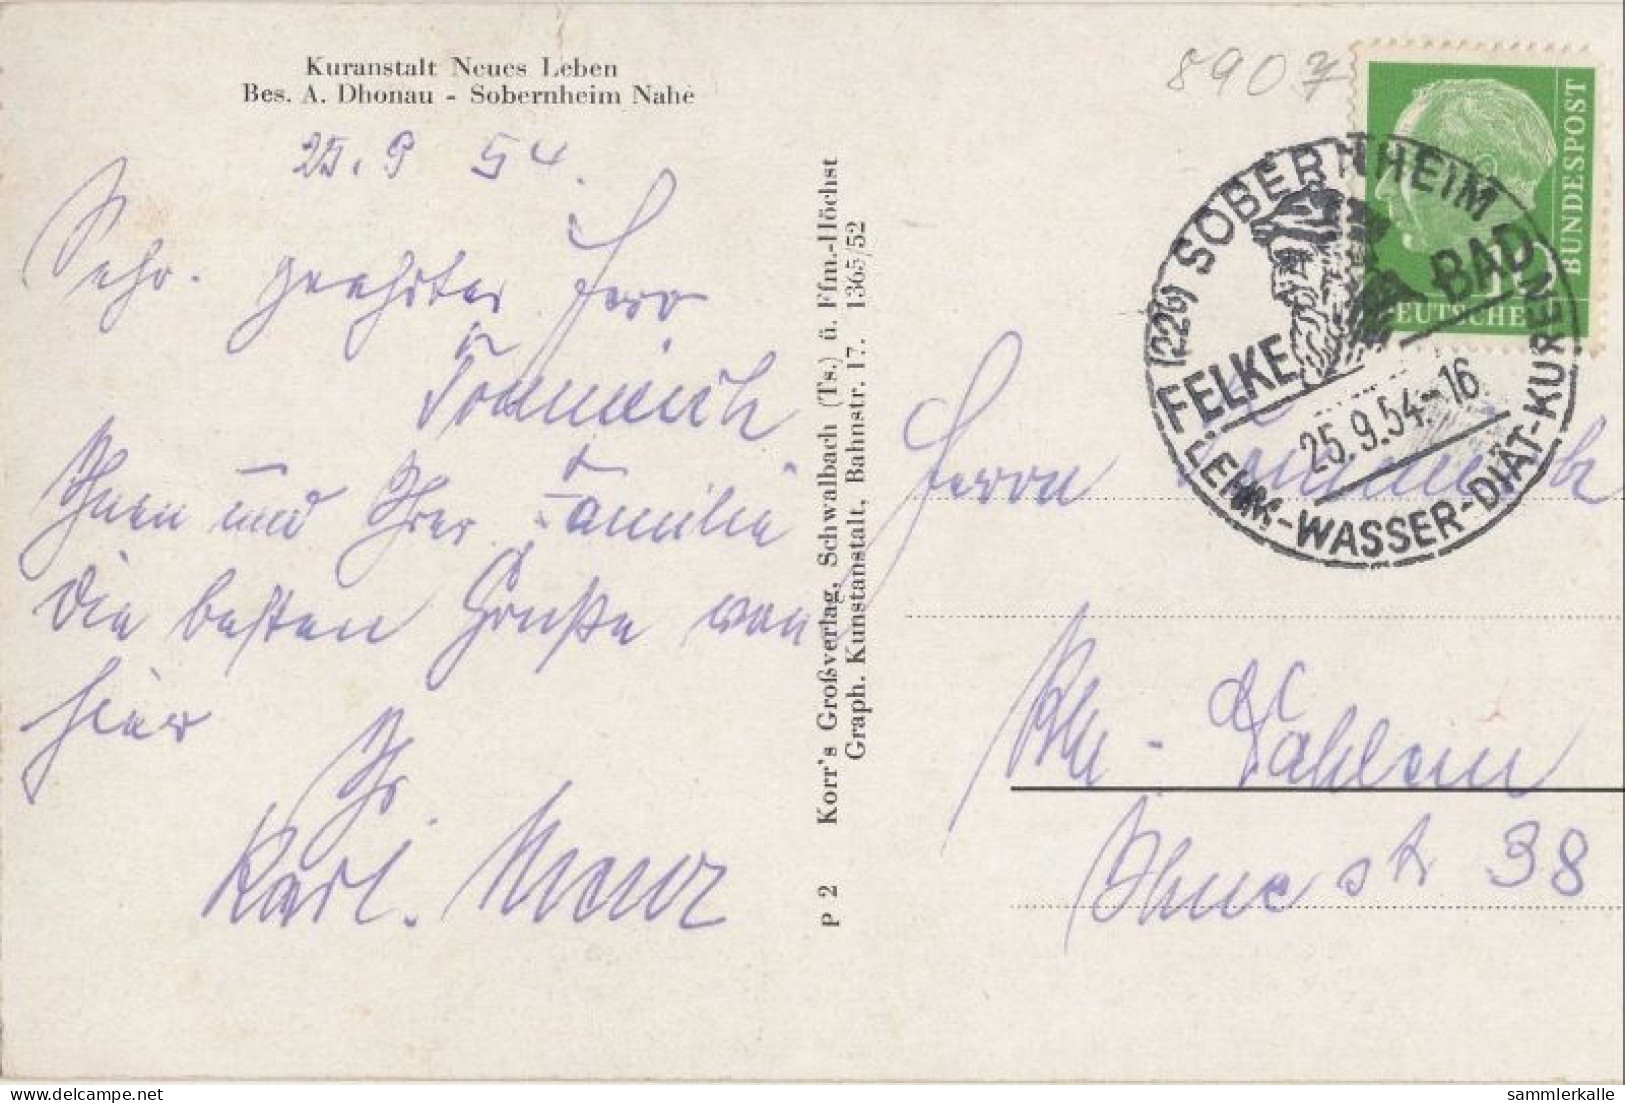 Kuranstalt Neues Leben
Bes. A. Dhonau - Sobernheim Nahe
25. 9 54.
Sehr. geehrter Herr
Ihnen und Ihrer Familie
die besten Grüße von
hier
Ihr
Karl.
P 2 Korr's Großverlag, Schwalbach (Ts.) ü. Ffm.-Höchst
Graph. Kunstanstalt, Bahnstr. 17. 1365/52
8907
BUNDESPOST
DEUTSCHE
(22b) SOBERNHEIM
FELKE BAD
25.9.54.-16
LEHM-WASSER-DIÄT-KUREN
Herrn
Dahlem
38
hippostcard.com
sammlerkalle